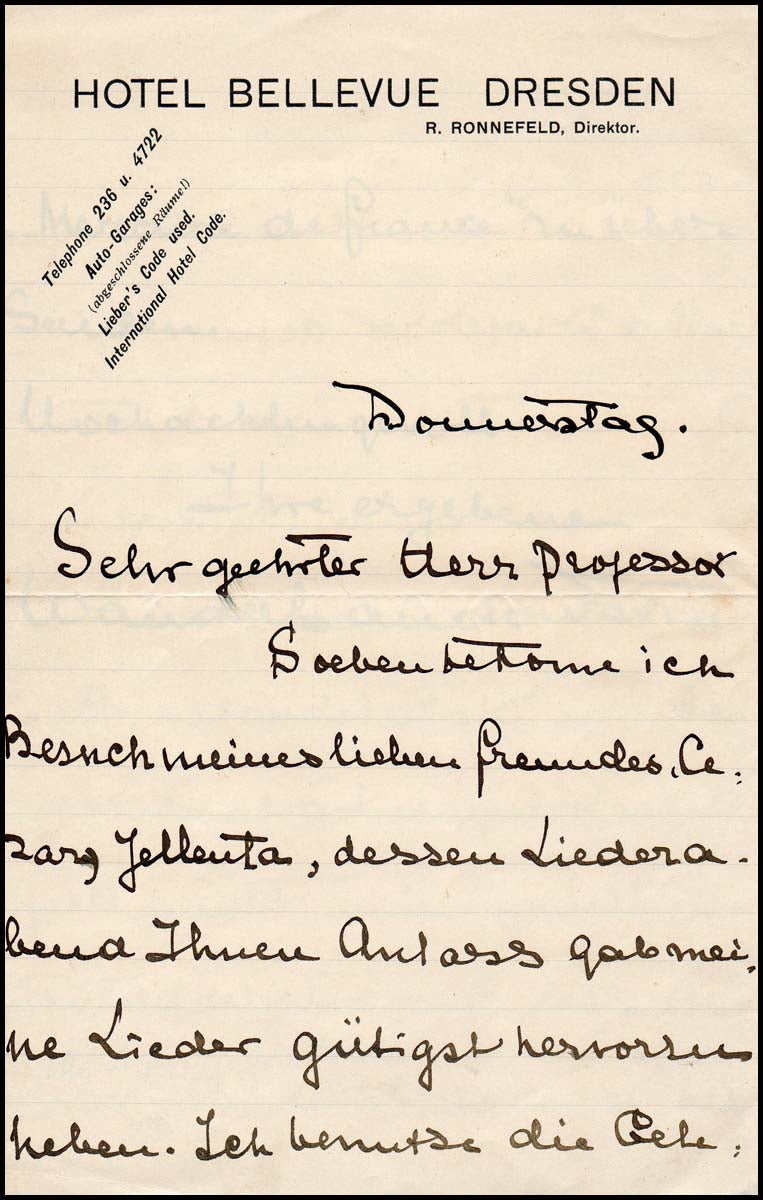 HOTEL BELLEVUE DRESDEN
R. RONNEFELD, Direktor.
Telephone 236 u. 4722
Auto-Garages:
(abgeschlossene Räume!)
Lieber's Code used.
International Hotel Code.
Donnerstag.
Sehr geehrter Herr Professor
Soeben bekome ich
Besuch meines lieben Freundes, Ce:
zary Jellenta, dessen Liedera-
bend Ihnen Anlass gab mei-
ne Lieder gütigst hervorzu
heben. Ich benutze die Gele:
Ihre ergebene